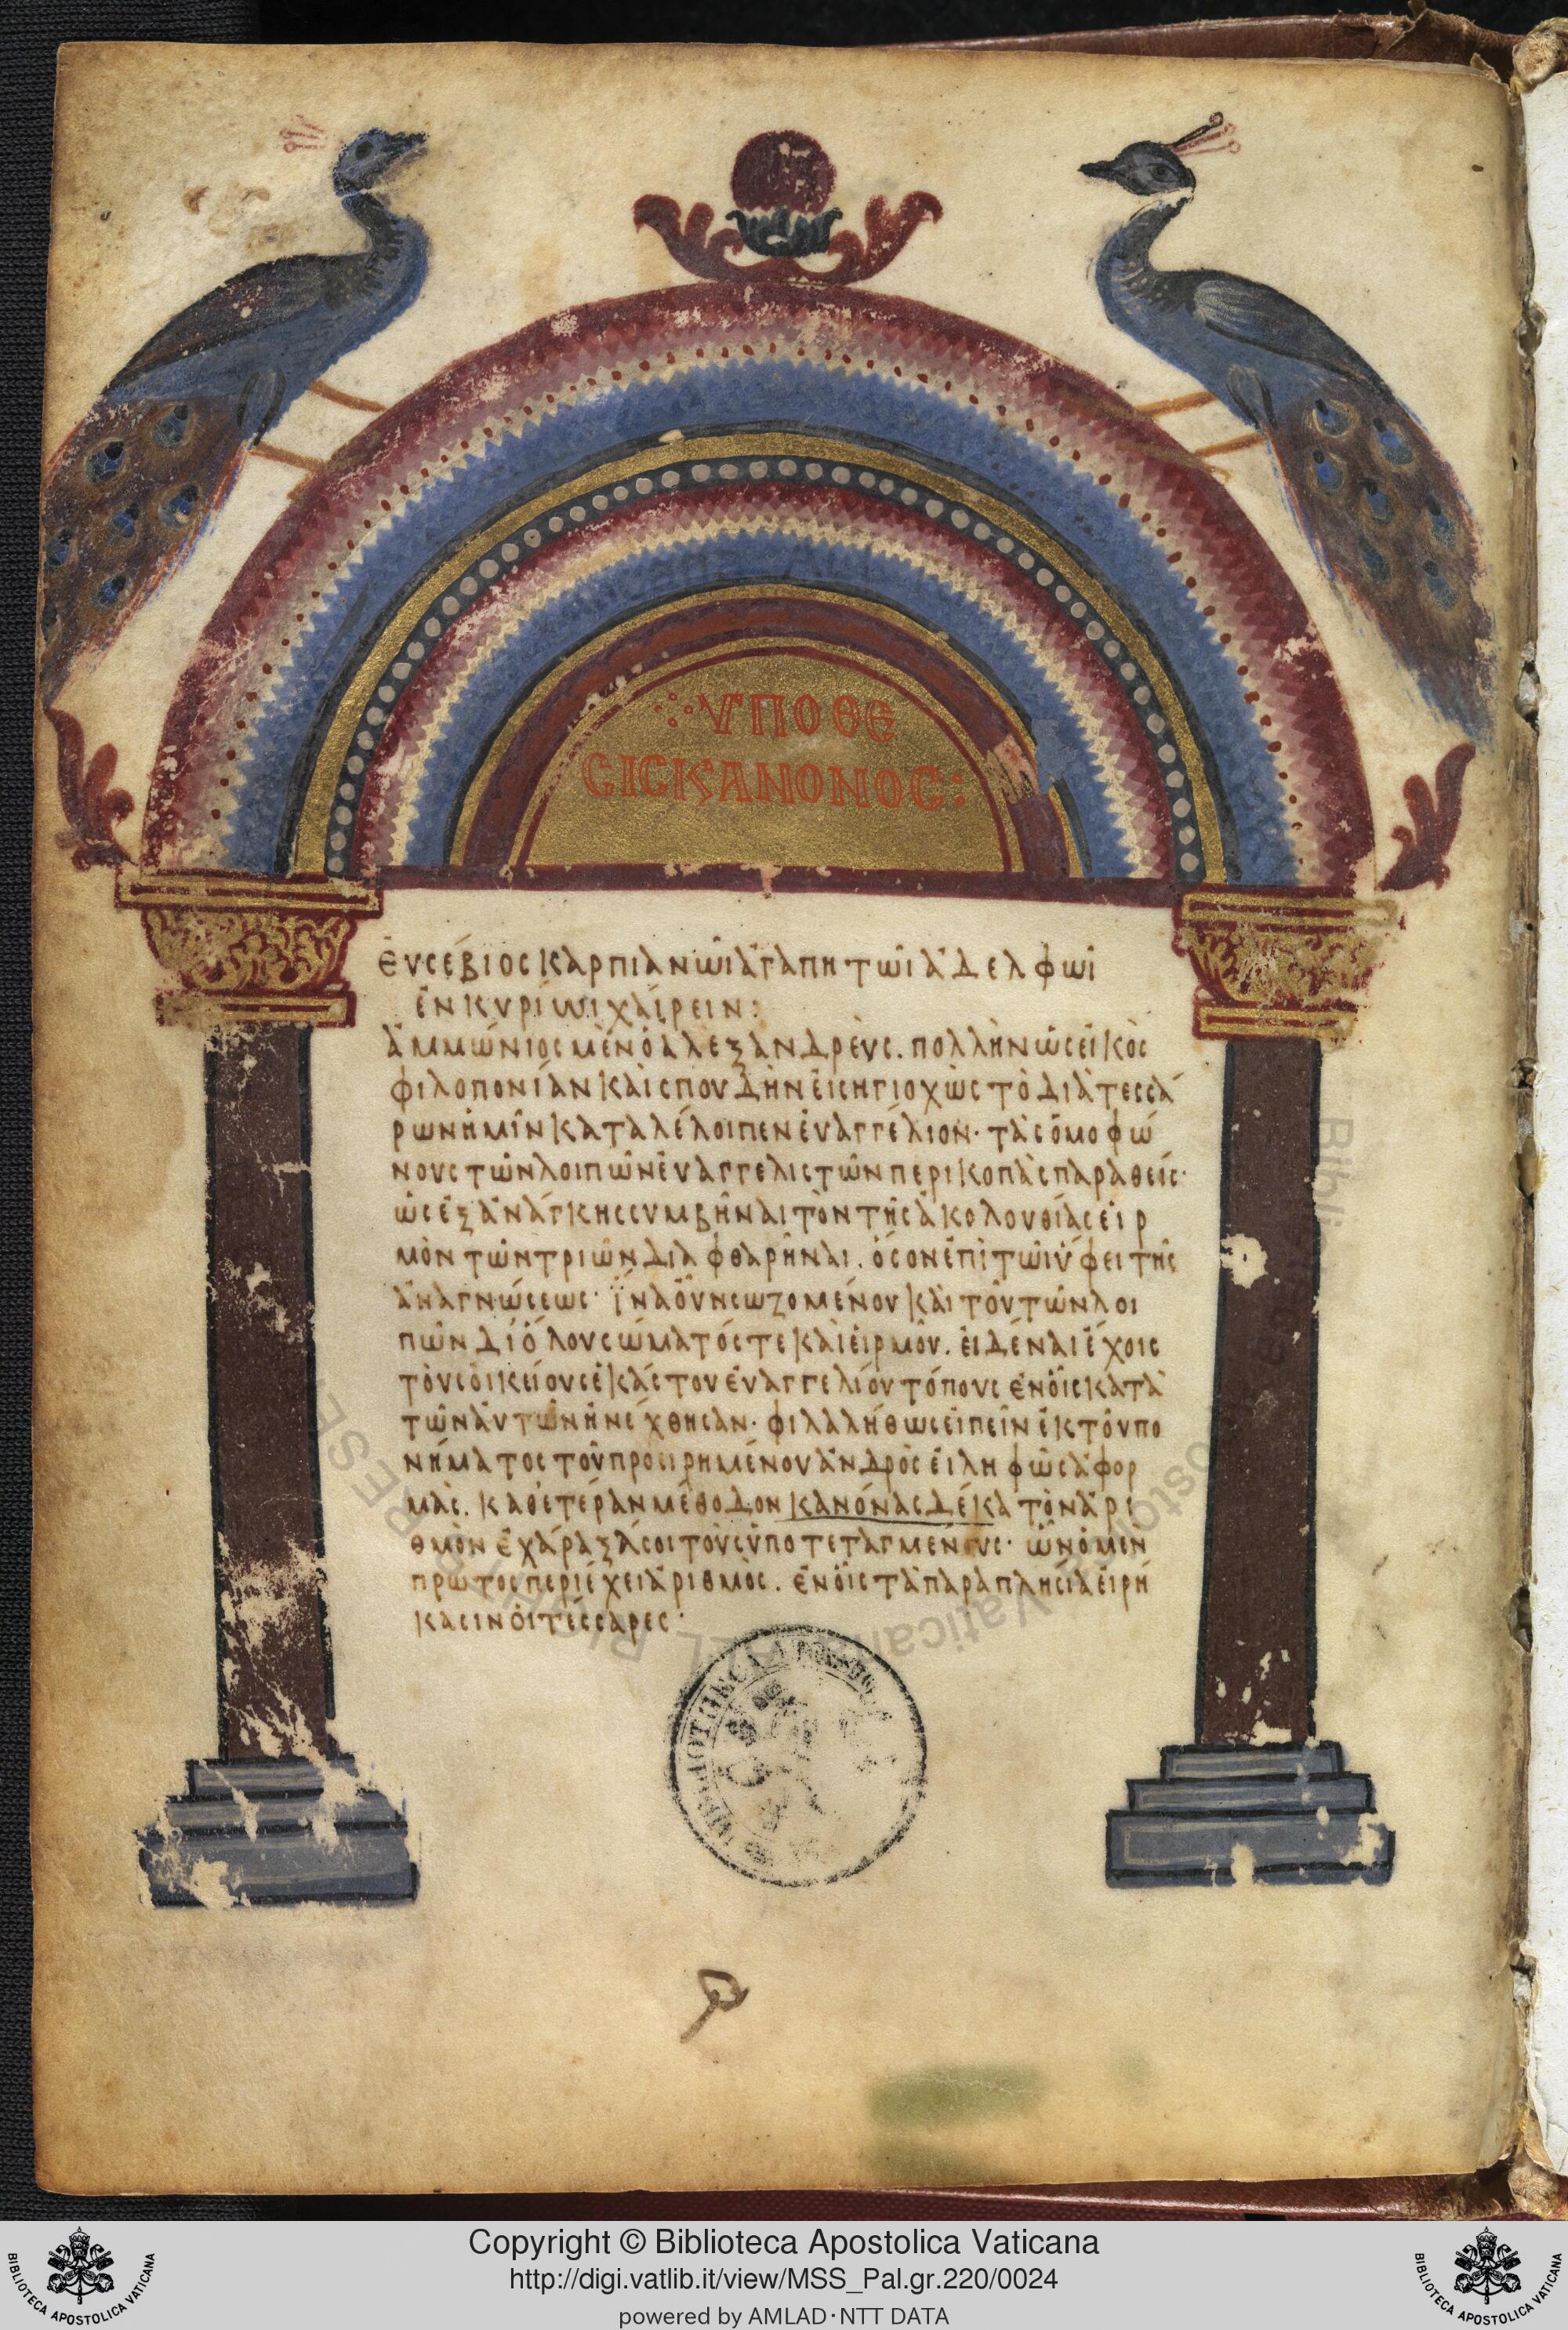 ὙΠΟΘΕ
CΙC ΚΑΝΟΝΟC:
ἐυσέβιος καρπιανῶι ἀγαπητῶι ἀδελφῶι
ἐν κυρίωι χαίρειν:
ἀμμώνιος μὲν ὁ ἀλεξανδρὲυς. πολλὴν ὡς εἰκὸς
φιλοπονίαν καὶ σπουδὴν ἐισηγιοχὼς τὸ διὰ τεσσά
ρων ἡμῖν καταλέλοιπεν ἐυαγγέλιον· τὰς ὁμοφώ
νους τῶν λοιπῶν ἐυαγγελιστῶν περικοπὰς παραθείς·
ὡς ἐξ ἀνάγκης συμβῆναι τὸν τῆς ἀκολουθίας ειρ
μὸν τῶν τριῶν διαφθαρῆναι. ὅσον ἐπὶ τῶι ὕφει τῆς
ἀναγνώσεως· ἵνα ὀῦν σωζομένου καὶ τοῦ τῶν λοι
πῶν δι ὅλου σώματός τε καὶ ἑιρμοῦ. ἐιδέναι ἔχοις
τὸυς ὀικείους ἑκάστου ἐυαγγελίου τόπους ἐν ὁῖς κατὰ
τῶν ἀυτῶν ἠνέχθησαν· φιλαλήθως ἐιπεῖν ἐκ τοῦ πο
νήματος τοῦ προειρημένου ἀνδρὸς ἐιληφὼς ἀφορ
μάς. καθ ἑτέραν μέθοδον κανόνας δέκα τὸν ἀρι
θμὸν ἐχάραξά σοι τὸυς ὑποτεταγμένους· ὧν ὁ μὲν
πρῶτος περιέχει ἀριθμὸς. ἐν ὁῖς τὰ παραπλησία ἐιρή
κασιν ὁι τέσσαρες·
Copyright © Biblioteca Apostolica Vaticana
http://digi.vatlib.it/view/MSS_Pal.gr.220/0024
powered by AMLAD·NTT DATA
BIBLIOTECA APOSTOLICA VATICANA
BIBLIOTECA APOSTOLICA VATICANA